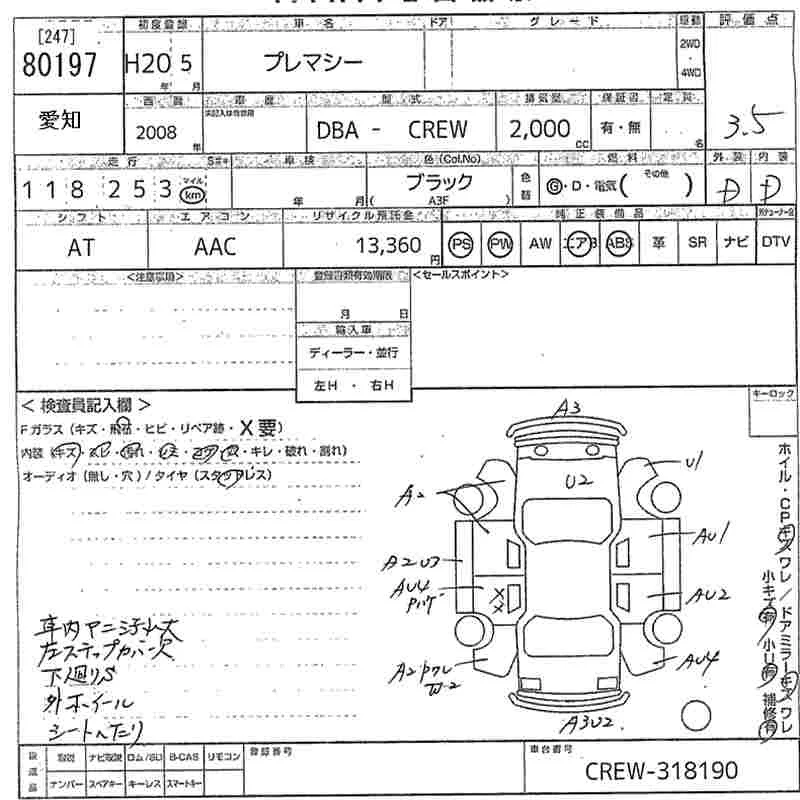 [247]
80197
初度登録
車名
ドア
グレード
駆動
評価点
H20 5
年 月
プレマシー
2WD
・
4WD
愛知
2008
年
車歴
型式
排気量
保証書
定員
DBA - CREW
2,000
CC
有・無
名
3.5
走行
車検
色(Col.No)
燃料
外装
内装
118253
マイル
km
年 月
ブラック
( A3F )
色替
G・D・電気( その他 )
D
D
シフト
エアコン
リサイクル預託金
純正装備品
AT
AAC
13,360 円
PS
PW
AW
エアB
ABS
革
SR
ナビ
DTV
<注意事項>
登録書類有効期限
<セールスポイント>
月 日
輸入車
ディーラー・並行
左H ・ 右H
キーロック
< 検査員記入欄 >
Fガラス(キズ・飛石・ヒビ・リペア跡・X要)
オーディオ(無し・穴)/タイヤ(スタッドレス)
A3
U2
U1
A2
AU1
A2U3
AU4
AU2
XX
AU4
A3U2
車内ヤニ
左ステップカバー欠
下廻りS
外ホイール
シートヘたり
ホイル・CPキズワレ/ドアミラーキズワレ
小キズ有 小U有 補修有
取説
ナビ取説
ロム/SD
B-CAS
リモコン
ナンバー
スペアキー
キーレス
スマートキー
登録番号
車台番号
CREW-318190